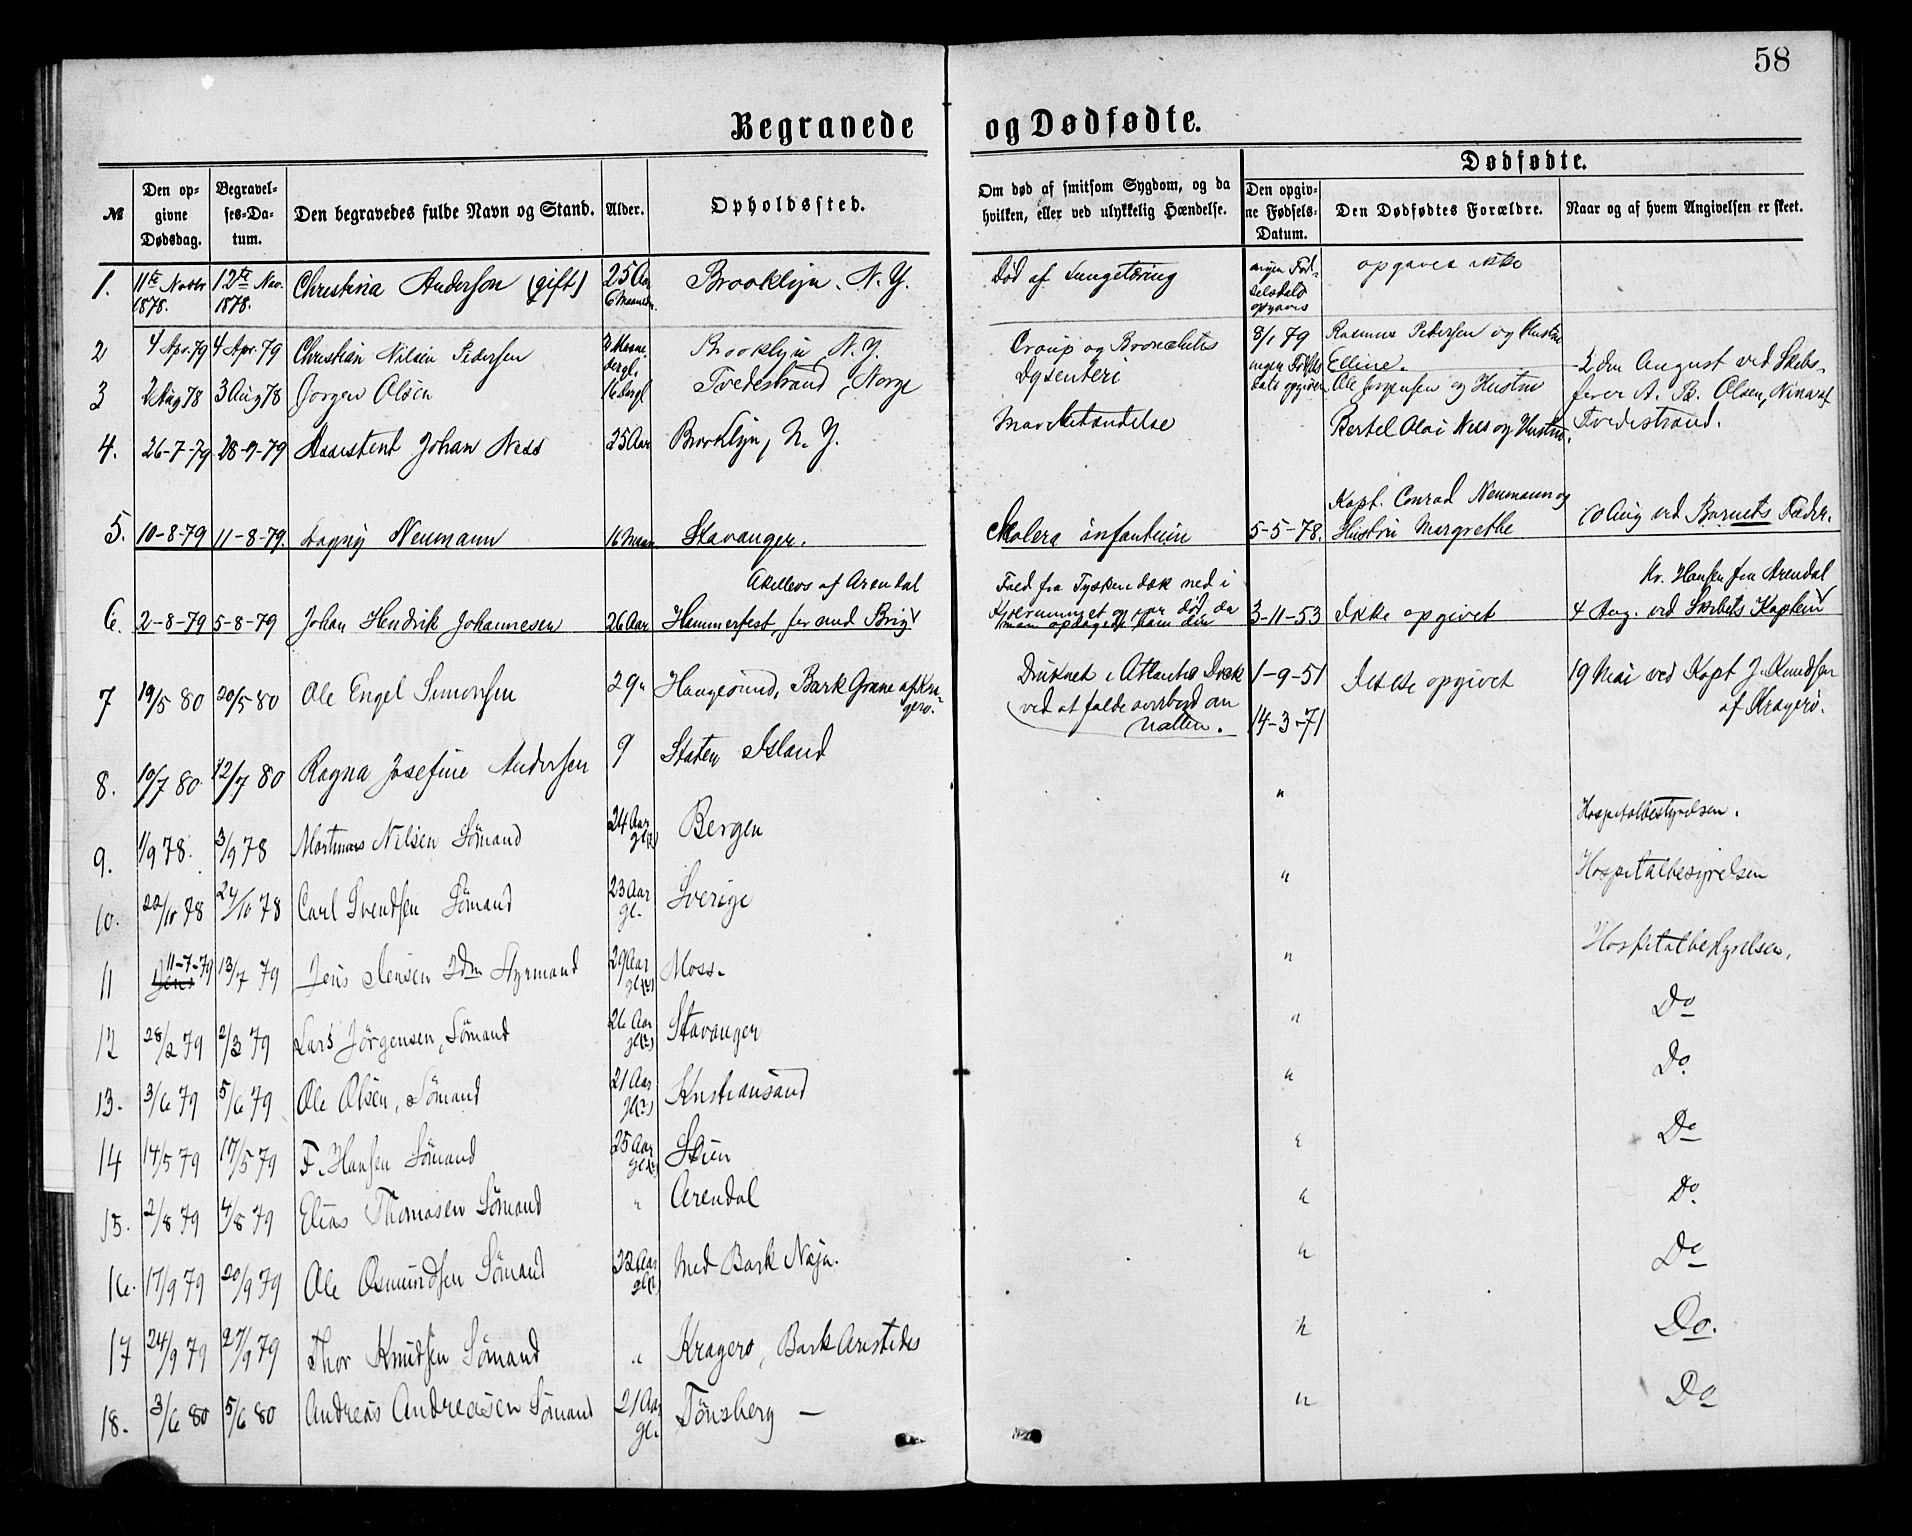 58
Begravede og Dødfødte.
Dødfødte.
№
Den opgivne Dødsdag.
Begravelses-Datum.
Den begravedes fulde Navn og Stand.
Alder.
Opholdssted.
Om død af smitsom Sygdom, og da hvilken, eller ved ulykkelig Hændelse.
Den opgivne Fødsels-Datum.
Den Dødfødtes Forældre.
Naar og af hvem Angivelsen er skeet.
1. 11te Novbr 1878. 12te Nov. 1878. Christina Andersen (gift) 25 Aar 6 Maaneder. Brooklyn, N. Y. Død af Lungetæring ingen Fødselsdato opgaves opgaves ikke
2 4 Apr. 79 4 Apr. 79 Christian Nilsen Pedersen Brooklyn N. Y. Croup og Bronchitis 8/1 79 Rasmus Pedersen og Hustru Elline.
3 2 Aug 78 3 Aug 78 Jørgen Olsen 16 Tvedestrand, Norge Dysenteri ingen Fødsels dato opgiven Ole Jørgensen og Hustru 2den August ved Skibsfører A. B. Olsen, Tvedestrand.
4. 26-7-79 28-7-79 Assistent Johan Ness 25 Aar Brooklyn, N. Y. Bertel Olai Ness og Hustru.
5. 10-8-79 11-8-79. Dagny Neumann 16 Maan Stavanger. Kolera infantum 5-5-78. Kapt. Conrad Neumann og Hustru Margrethe 10 Aug ved Barnets Fader.
6. 2-8-79 5-8-79 Johan Hendrik Johannesen 26 Aar Hammerfest, for med Brig Akillevs af Arendal Fald fra Tyskendæk ned i og var død, da man opdagede ham 3-11-53 Ikke opgivet 4 Aug. ved Skibets Kaptein Kr. Hansen fra Arendal
7 19/5 80 20/5 80 Ole Engel Simonsen 29" Haugesund, Bark Grane af Kragerø. Druknet i Atlantic Dock ved at falde overbord om Natten. 1-9-51 Ikke opgivet 19 Mai ved Kapt J. Knudsen af Kragerø.
8. 10/7 80 12/7 80 Ragna Josefine Andersen 9 Staten Island 14-3-71
9. 1/9 78. 3/9 78 Nilsen Sömand 24 Aar gl. Bergen " Hospitalbestyrelsen.
10. 22/10 78 24/10 78 Carl Svendsen Sömand 23 Aar gl. Sverige " Hospitalbestyrelsen
11 11-7-79 13/7 79 Jens Jensen 2den Styrmand 29 Aar gl. Moss. " Hospitalbestyrelsen.
12 28/2 79 2/3 79 Lars Jörgensen, Sömand 26 Aar gl. Stavanger " Do
13. 3/6 79 5/6 79 Ole Olsen, Sömand 21 Aar gl. Kristiansand " Do.
14 14/5 79 17/5 79 F. Hansen Sömand 25 Aar gl. Skien " Do
15. 2/8 79 4/8 79 Elias Thomasen Sömand " Arendal " Do.
16. 17/9 79 20/9 79 Ole Osmundsen Sömand Aar gl. Med Bark Naja. " Do
17 24/9 79 27/9 79 Thor Knudsen Sömand " Kragerø, Bark Aristides " Do.
18. 3/6 80 5/6 80 Andreas Andreasen Sömand 21 Aar gl. Tönsberg — " Do